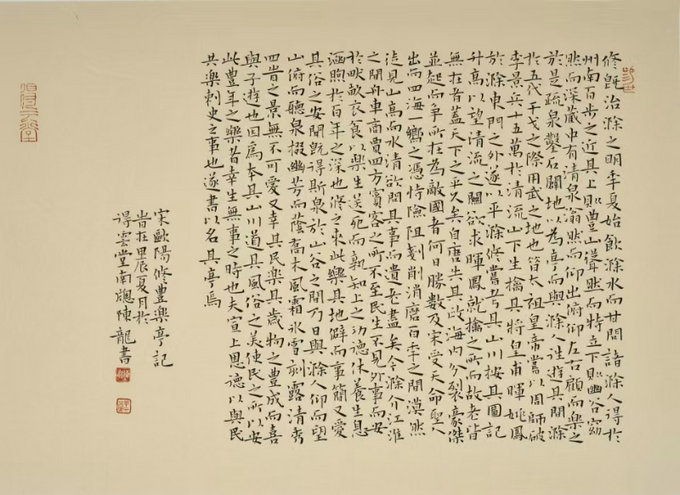 修既治滁之明季夏始飲滁水而甘問諸滁人得於
州南百步之近其上則豐山聳然而特立下則幽谷窈
然而深藏中有清泉滃然而仰出俯仰左右顧而樂之
於是疏泉鑿石闢地以為亭而與滁人往遊其間滁
於五代干戈之際用武之地也昔太祖皇帝嘗以周師破
李景兵十五萬於清流山下生擒其將皇甫暉姚鳳
於滁東門之外遂以平滁修嘗考其山川按其圖記
升高以望清流之關欲求暉鳳就擒之所而故老皆
無在者蓋天下之平久矣自唐失其政海內分裂豪傑
並起而爭所在為敵國者何可勝數及宋受天命聖人
出而四海一嚮之憑恃險阻剗削消磨百季之間漠然
徒見山高而水清欲問其事而遺老盡矣今滁介江淮
之間舟車商賈四方賓客之所不至民生不見外事而安
於畎畝衣食以樂生送死而孰知上之功德休養生息
涵煦於百年之深也修之來此樂其地僻而事簡又愛
其俗之安閒既得斯泉於山谷之間乃日與滁人仰而望
山俯而聽泉掇幽芳而蔭喬木風霜冰雪刻露清秀
四時之景無不可愛又幸其民樂其歲物之豐成而喜
與予遊也因為本其山川道其風俗之美使民之所以安
此豐年之樂者幸生無事之時也夫宣上恩德以與民
共樂刺史之事也遂書以名其亭焉
宋歐陽修豐樂亭記
時在壬辰夏月於
得雲堂南窗陳龍書